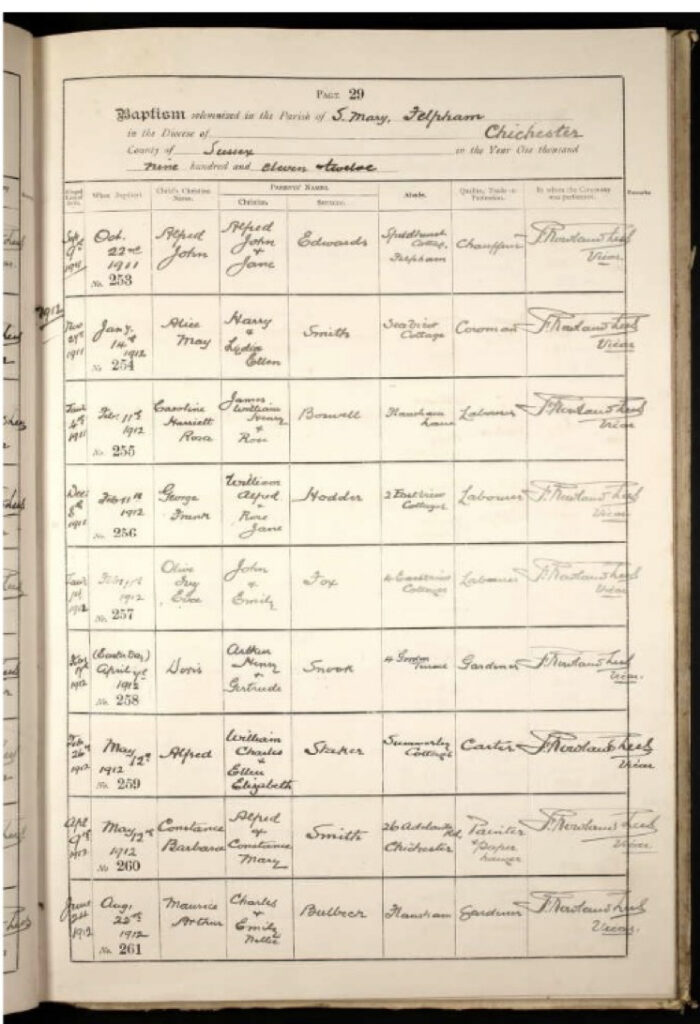 PAGE 29
Baptism solemnised in the Parish of S. Mary, Felpham
in the Diocese of Chichester
County of Sussex in the Year One thousand
nine hundred and eleven twelve
When Baptised. Child's Christian Name. PARENTS' NAMES. Christian. Surname. Abode. Quality, Trade or Profession. By whom the Ceremony was performed. Remarks
Sept 9th 1911
Oct. 22nd 1911
No. 253
Alfred John
Alfred John & Jane
Edwards
Cottage, Felpham
Chauffeur
Vicar
1912
Nov 1911
Jany. 14th 1912
No. 254
Alice May
Harry & Lydia Ellen
Smith
Sea View Cottage
Cowman
Vicar
1911
Feb. 11th 1912
No. 255
Caroline Harriett Rosa
James William Henry & Rose
Boswell
Flansham Lane
Labourer
Vicar
Dec 8th 1911
Feb 11th 1912
No. 256
George Frank
William Alfred & Rose Jane
Hodder
2 East View Cottages
Labourer
Vicar
1912
1912
No. 257
Olive Ivy
John & Emily
Fox
Cottages
Labourer
Vicar
1912
(Easter Day) April 7th 1912
No. 258
Doris
Arthur Henry & Gertrude
Snook
4
Gardener
Vicar.
Feb 26th 1912
May 12th 1912
No. 259
Alfred
William Charles & Ellen Elizabeth
Staker
Summerley Cottages
Carter
Vicar
Apl 9th 1912
May 12th 1912
No. 260
Constance Barbara
Alfred & Constance Mary
Smith
26 Adelaide Rd Chichester
Painter & Paper hanger
Vicar.
June 24 1912
Aug. 25th 1912
No. 261
Maurice Arthur
Charles & Emily Nellie
Bulbeck
Flansham
Gardener
Vicar.